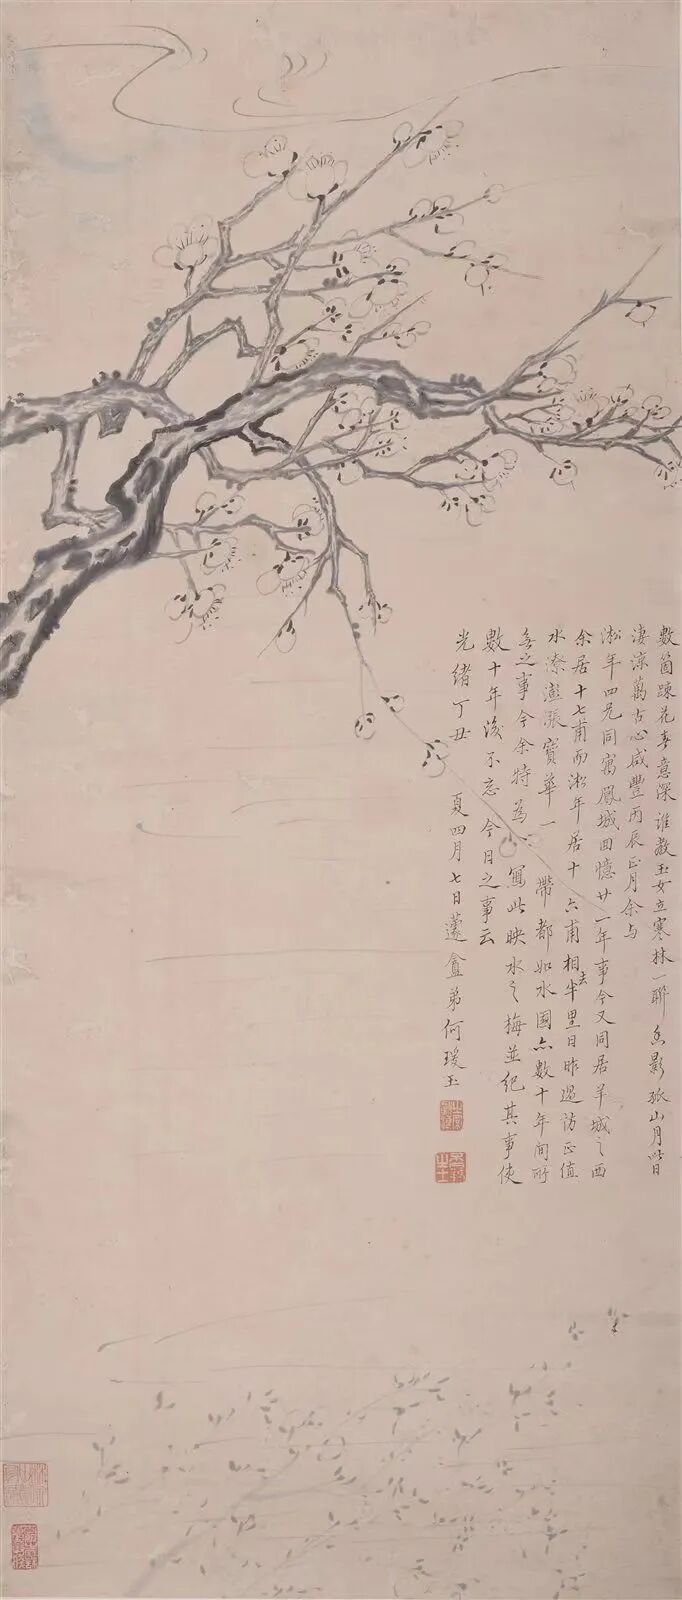 數箇疎花春意深誰教玉女立寒林一聯香影孤山月此日
淒涼萬古心咸豐丙辰正月余與
淞年四兄同寓鳳城回憶廿一年事今又同居羊城之西
余居十七甫而淞年居十六甫相去半里日昨過訪正值
水潦澎漲寶華一帶都如水國亦數十年間所
無之事今余特為寫此映水之梅並紀其事使
數十年後不忘今日之事云
光緒丁丑夏四月七日蘧盦弟何瑗玉